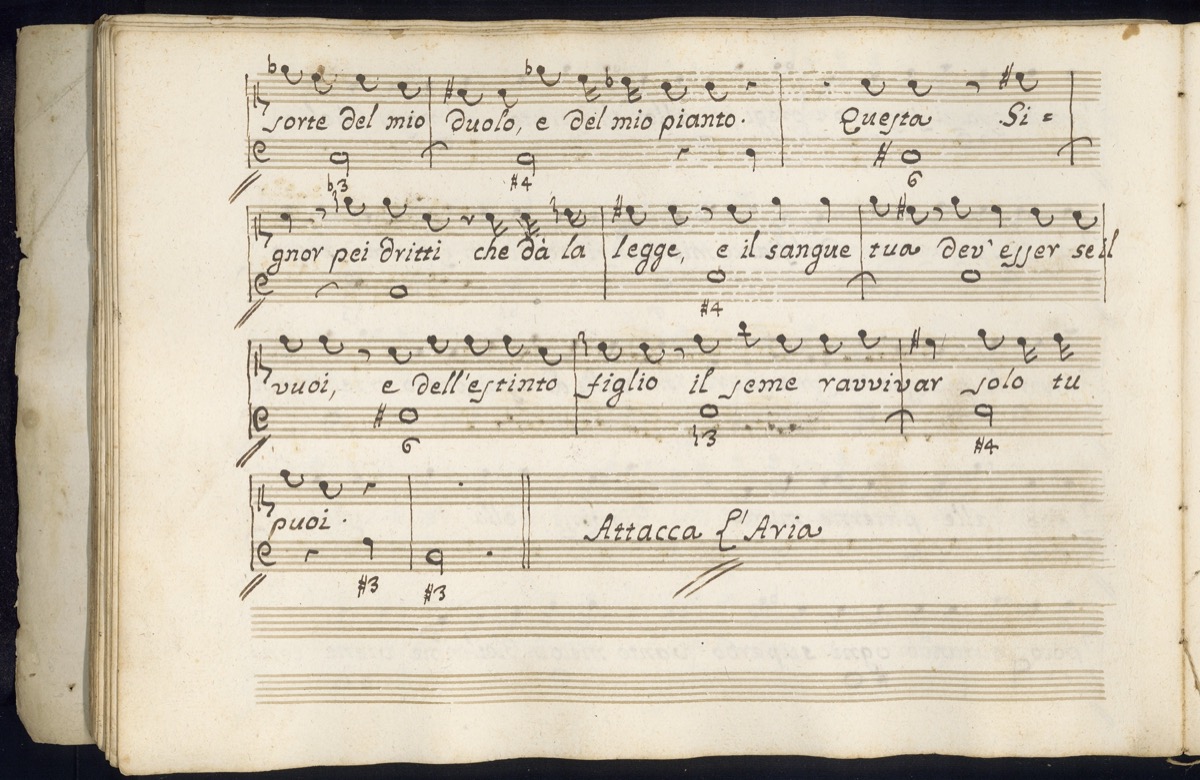 sorte del mio duolo, e del mio pianto. Questa Si =
♭3 #4 6
gnor pei dritti che dà la legge, e il sangue tua dev' esser se il
#4
vuoi, e dell'estinto figlio il seme ravvivar solo tu
6 ♮3 #4
puoi. Attacca L'Aria
#3 #3